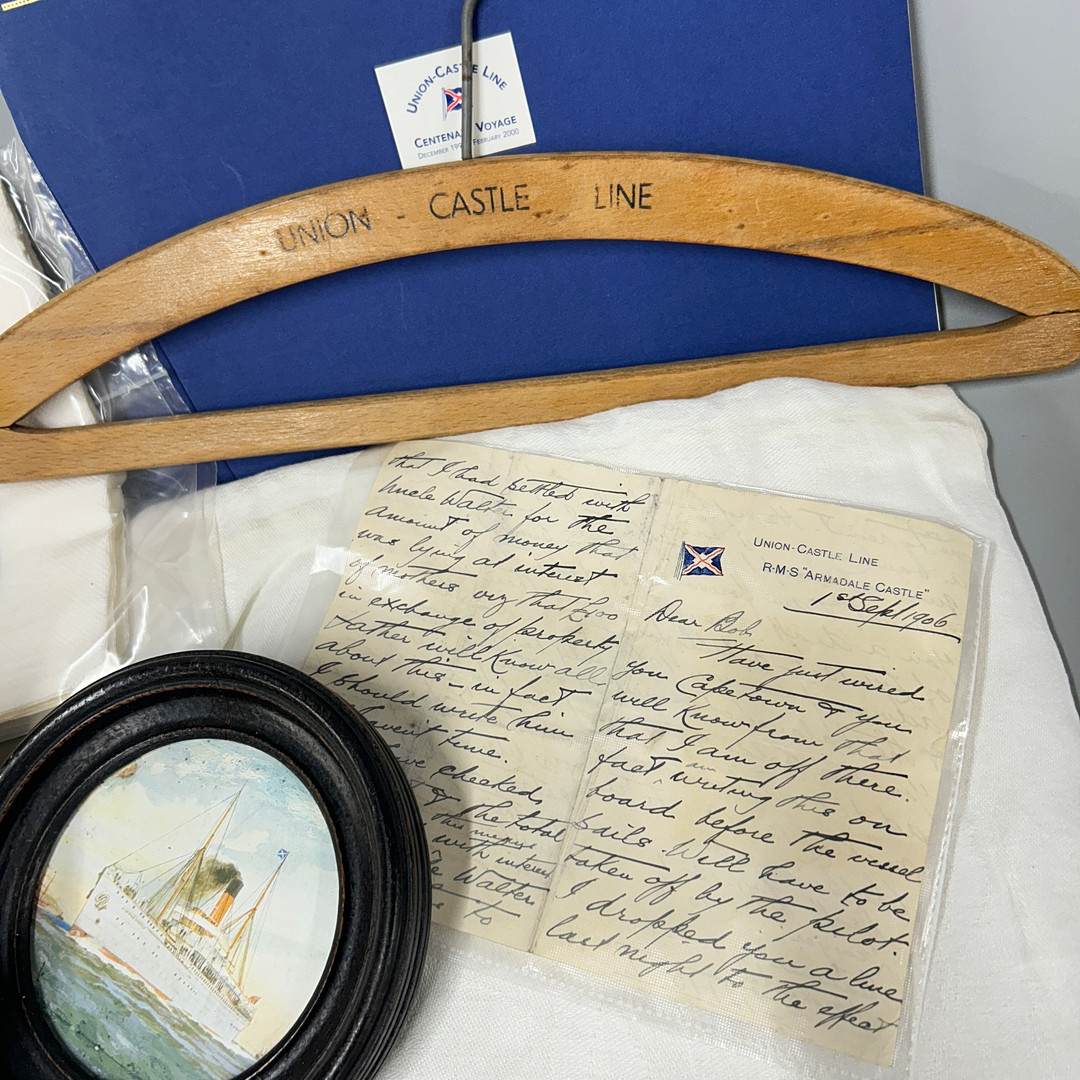 UNION-CASTLE LINE
CENTENA VOYAGE
DECEMBER 199 FEBRUARY 2000
UNION - CASTLE LINE
that I had settled with
Uncle Walter for the
amount of money that
was lying at interest
of mothers viz that £300
in exchange of property
Father will know all
about this - in fact
I should write him
time.
checked
& the total
this
with interest
Walter
to
UNION-CASTLE LINE
R.M.S "ARMADALE CASTLE"
1st Sept/1906
Dear Bob
Have just wired
you Capetown & you
will know from that
that I am off there.
fact am writing this on
board before the vessel
sails. Will have to be
taken off by the pilot.
I dropped you a line
last night to the effect